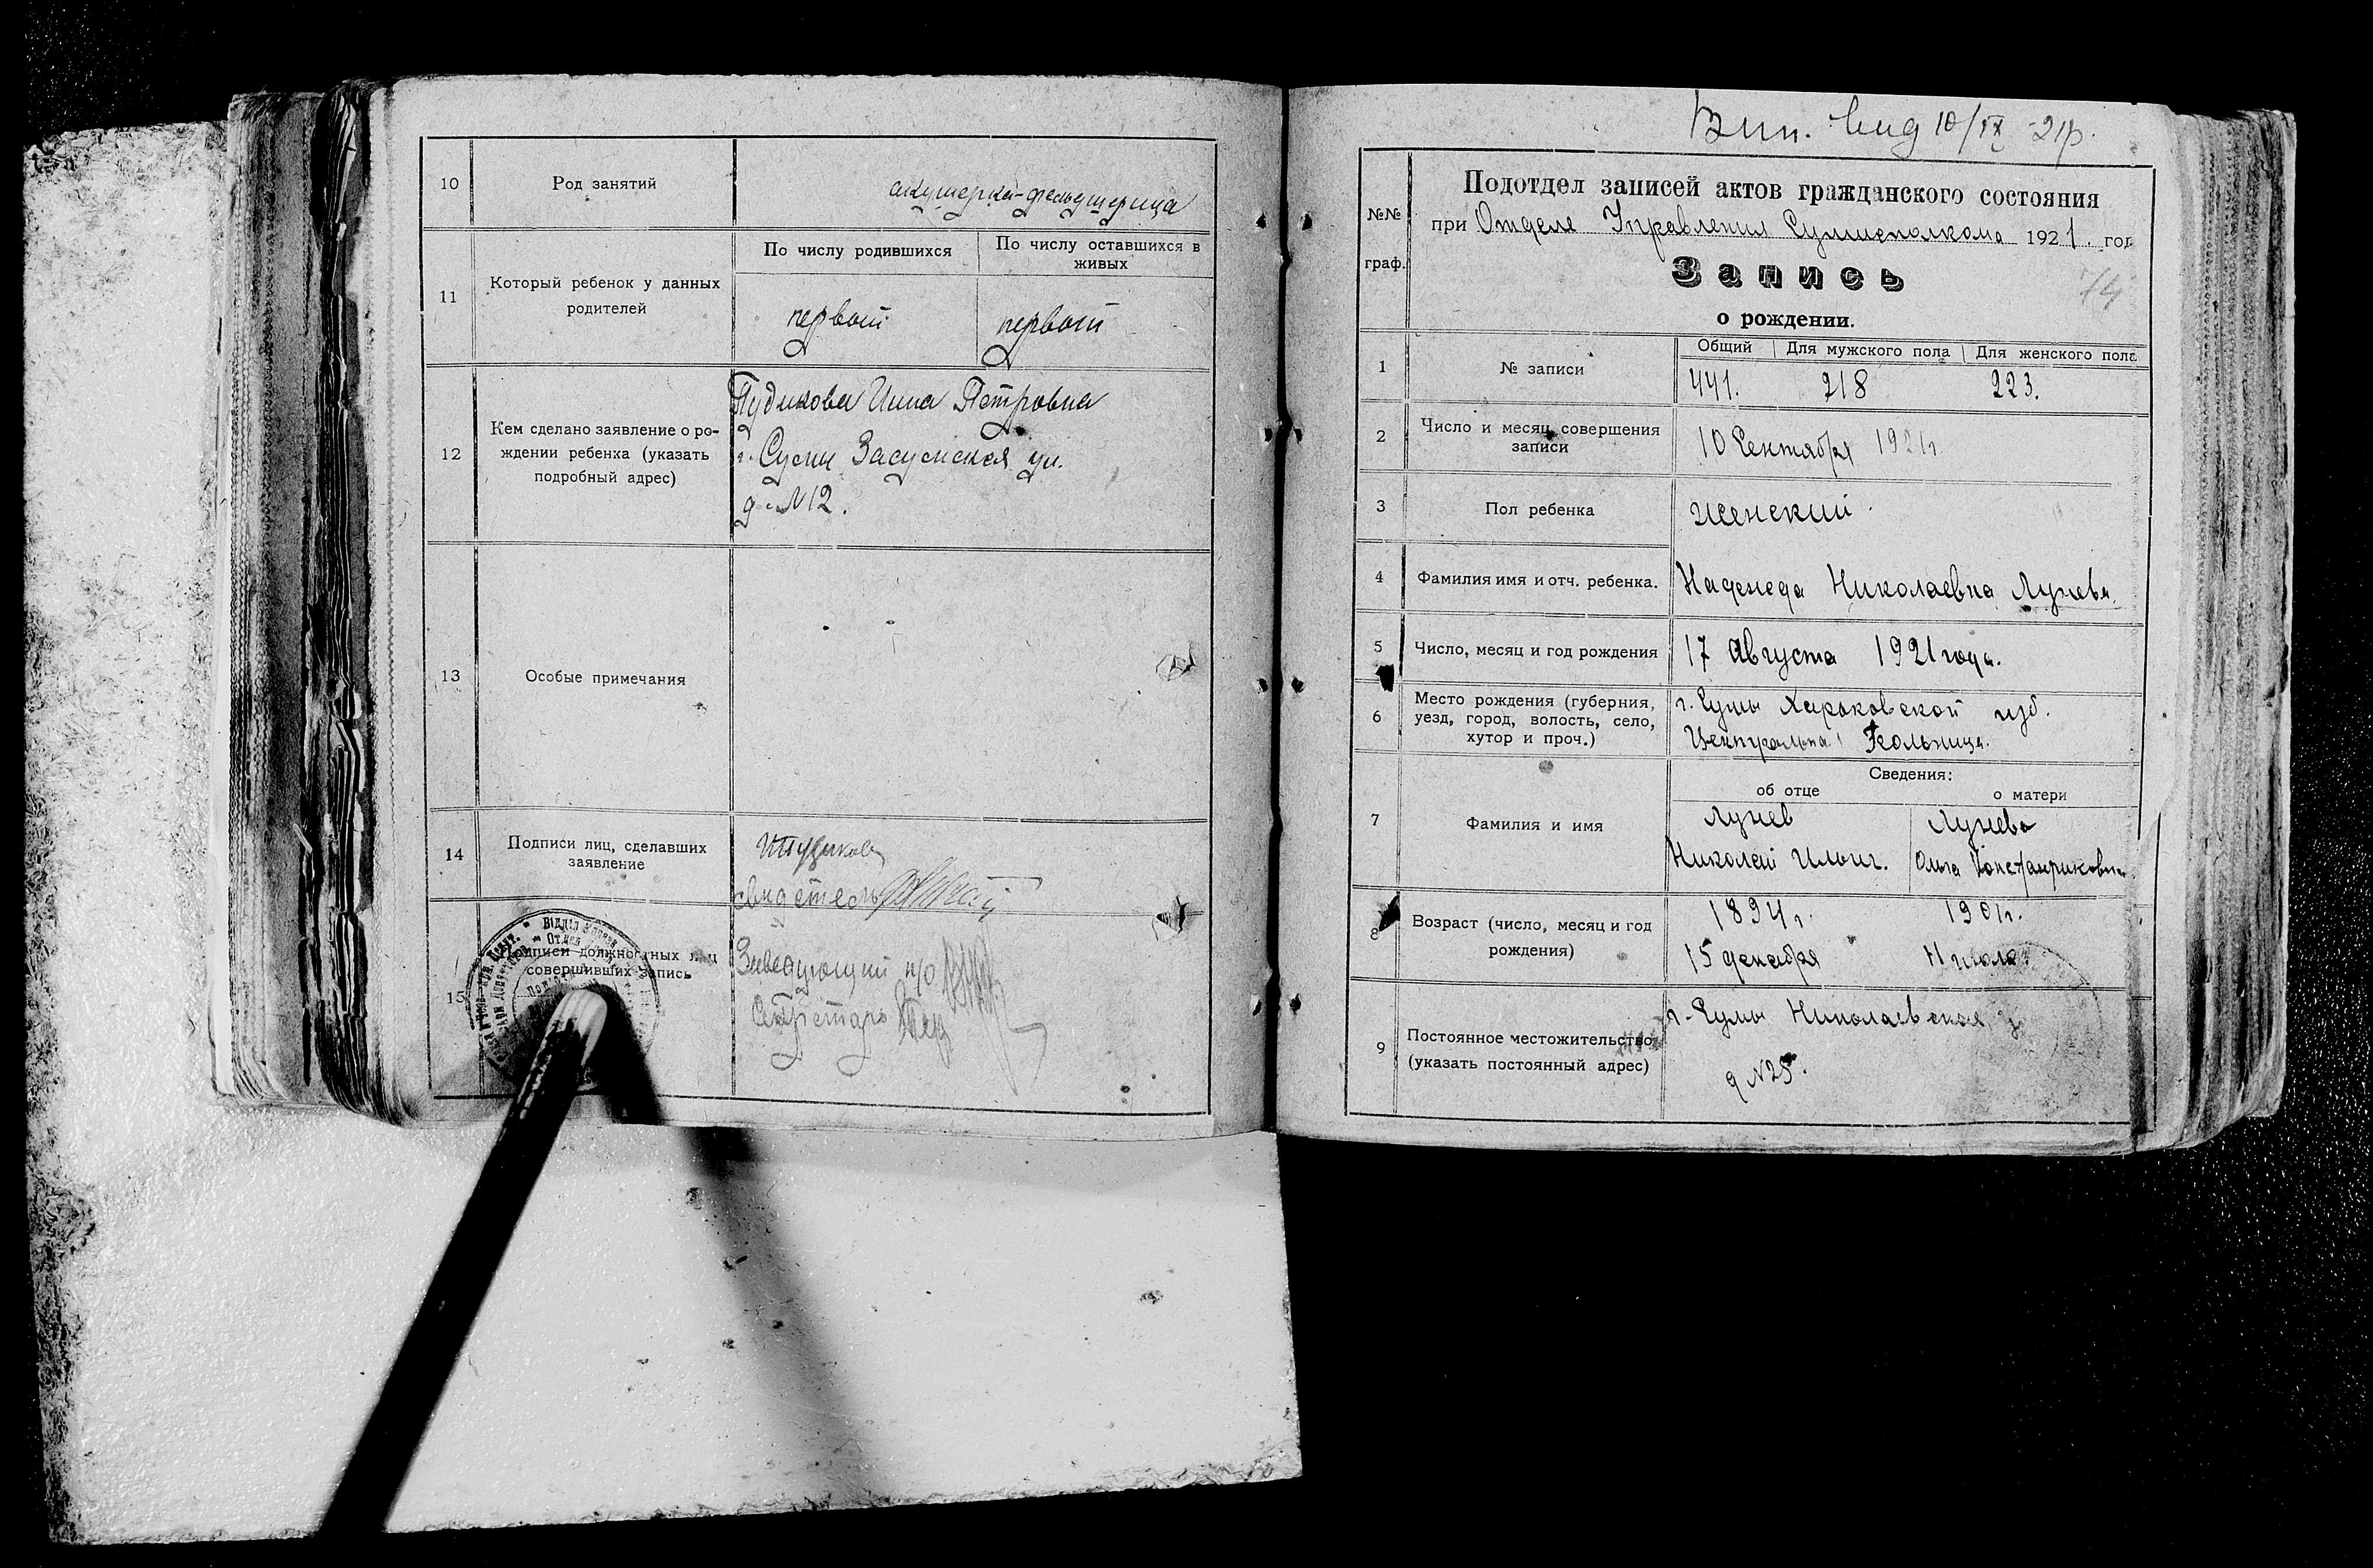 10
Род занятий
акушерка-фельдшерица
11
Который ребенок у данных
родителей
По числу родившихся
По числу оставшихся в
живых
первый
первый
12
Кем сделано заявление о ро-
ждении ребенка (указать
подробный адрес)
Пудикова Нина Петровна
г. Сумы Засумская ул.
д. №12.
13
Особые примечания
14
Подписи лиц, сделавших
заявление
15
Подписи должностных лиц
совершивших запись
Заведующий п/о
Секретарь
Вип. вид 10/IX 21р.
№№
граф.
Подотдел записей актов гражданского состояния
при Отделе Управления Сумисполкома 1921. год
Запись
14
о рождении.
1
№ записи
Общий
Для мужского пола
Для женского пола
441.
218
223.
2
Число и месяц совершения
записи
10 Сентября 1921г.
3
Пол ребенка
женский
4
Фамилия имя и отч. ребенка.
Надежда Николаевна Лунева.
5
Число, месяц и год рождения
17 Августа 1921 года.
6
Место рождения (губерния,
уезд, город, волость, село,
хутор и проч.)
г. Сумы Харьковской губ.
Больница.
Сведения:
об отце
о матери
7
Фамилия и имя
Лунев
Николай Ильич.
Лунева
Ольга
8
Возраст (число, месяц и год
рождения)
1894г.
15 декабря
1901г.
9
Постоянное местожительство
(указать постоянный адрес)
г. Сумы Николаевская
д №25.